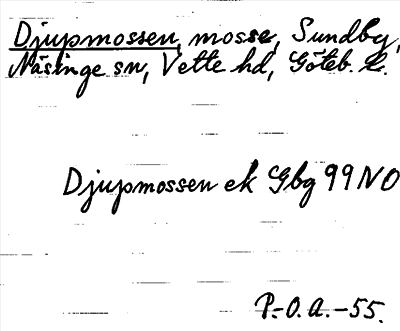 Djupmossen, mosse, Sundby,
Näsinge sn, Vette hd, Göteb. l.
Djupmossen ek Gbg 99 NO
P.-O.A.-55.